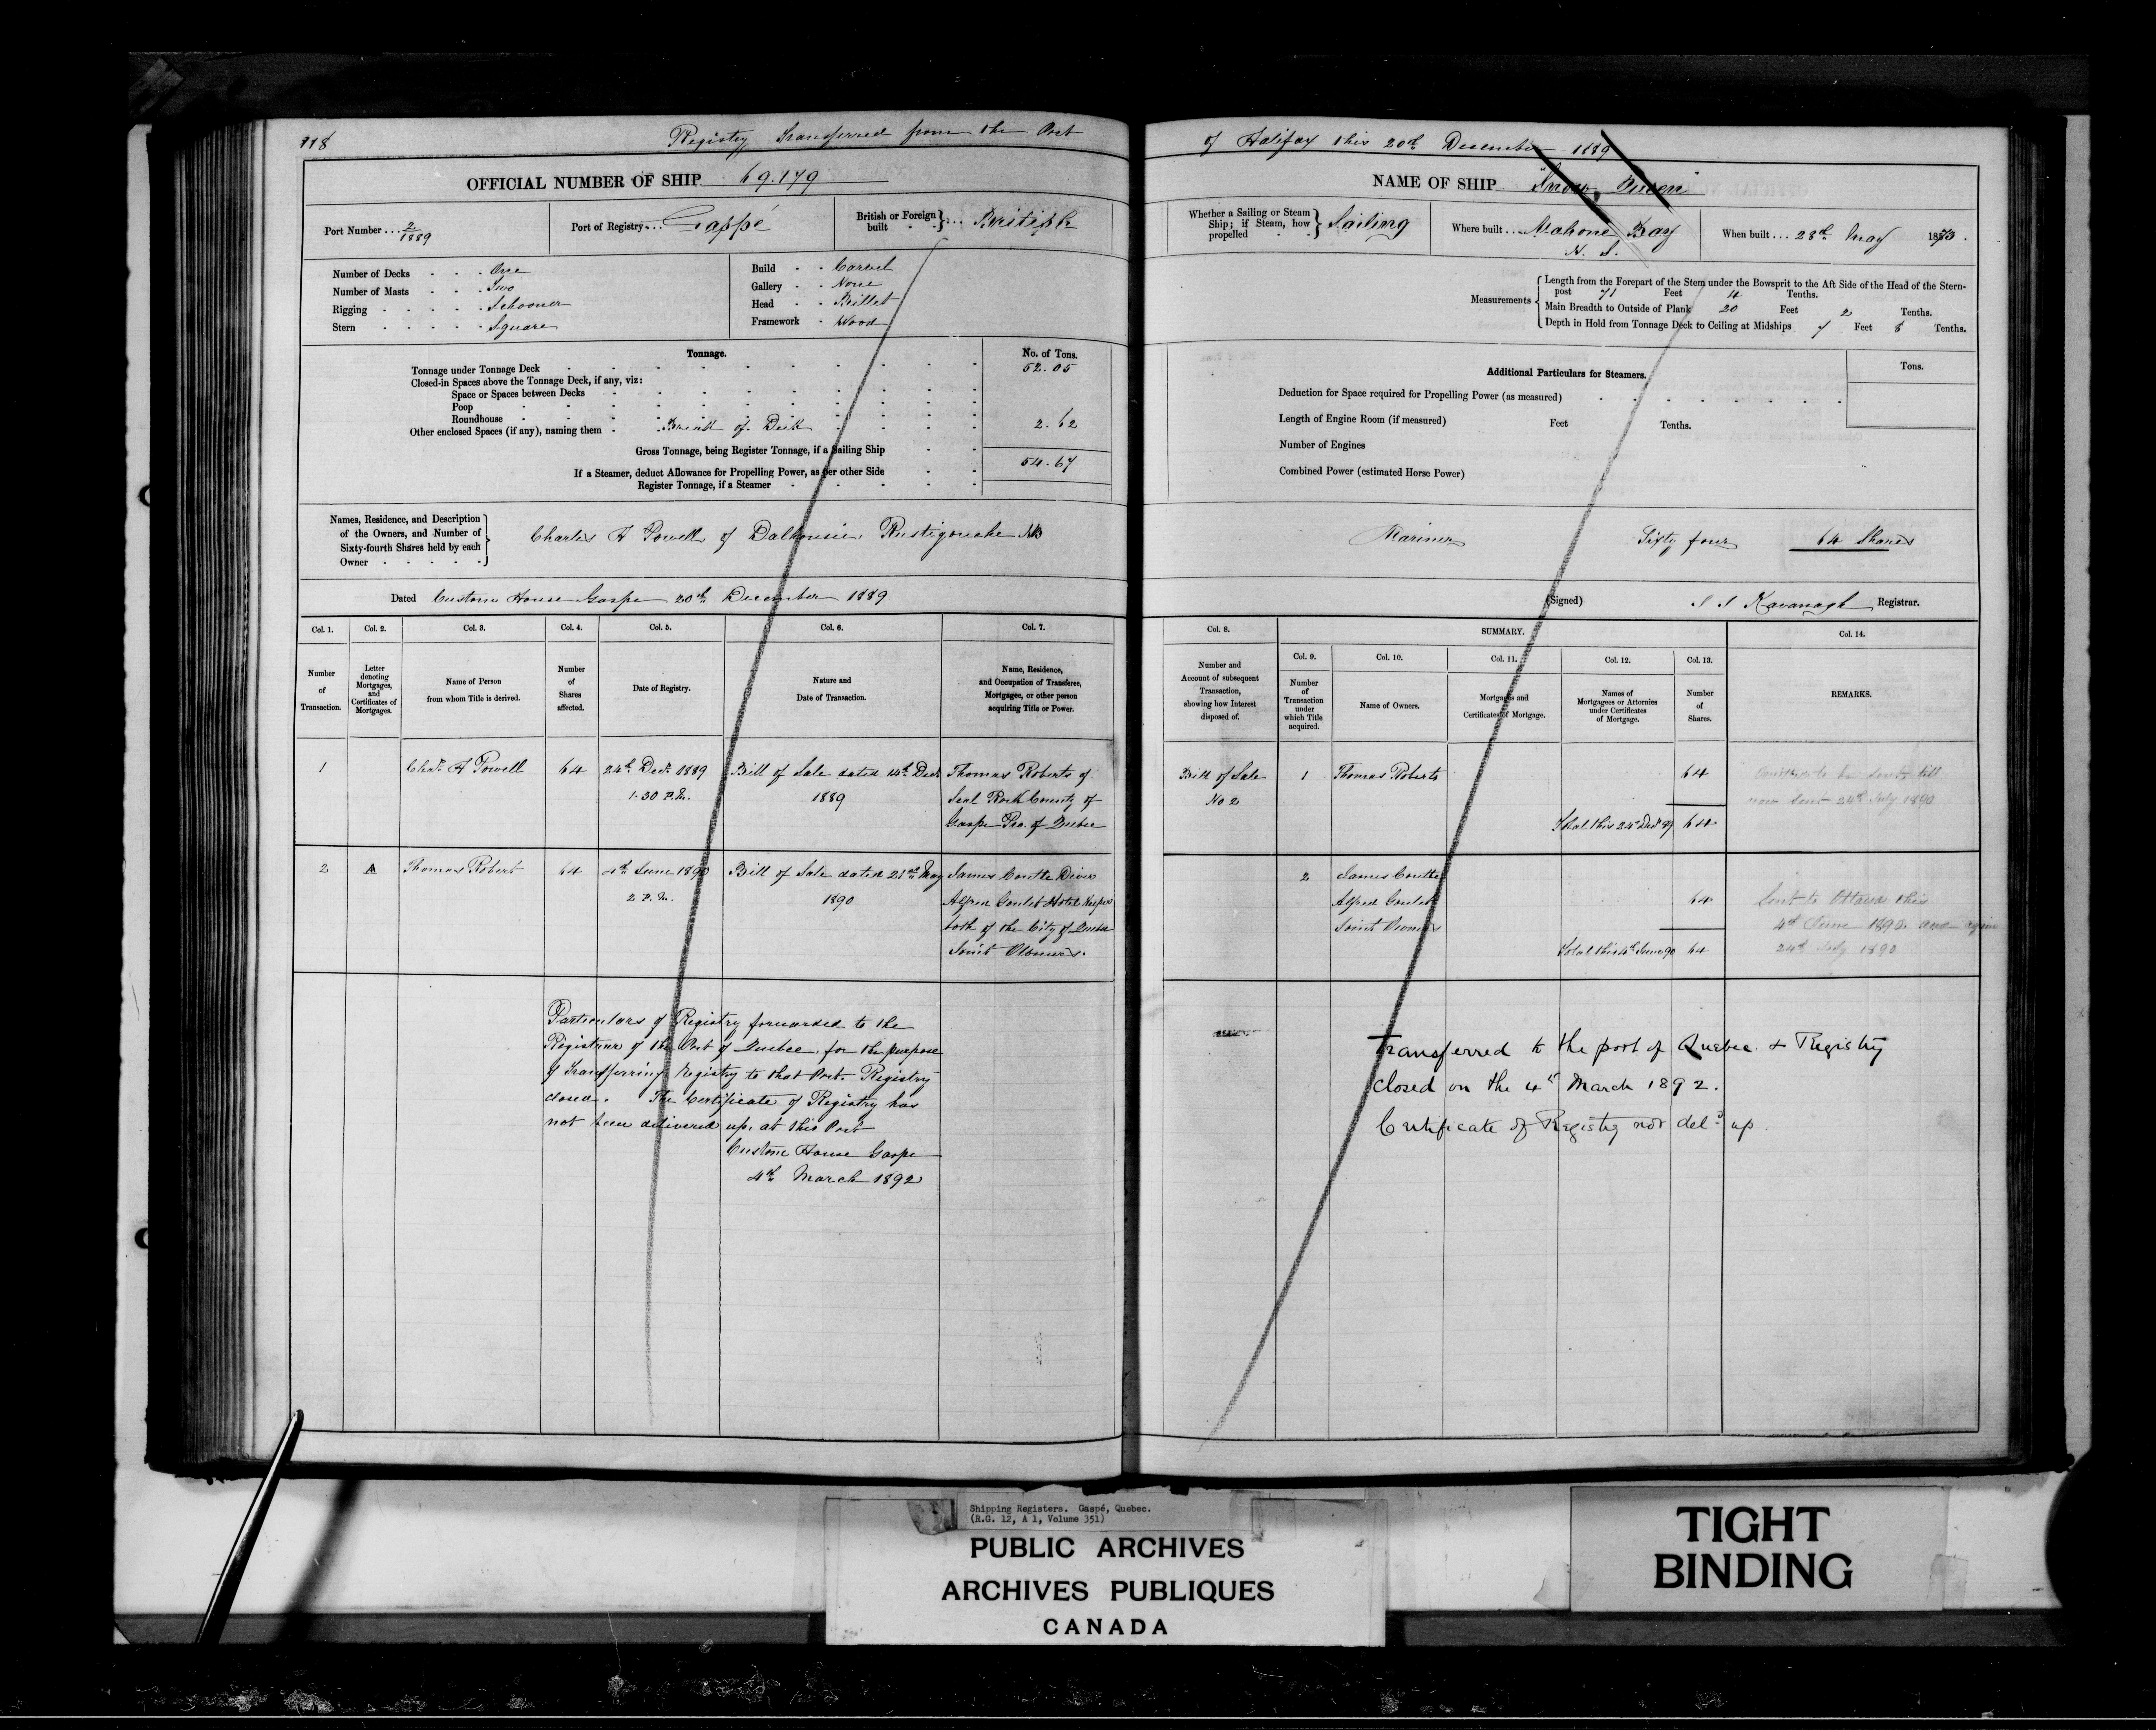 118 Registry Transferred from the Port
of Halifax this 20th December 1889
OFFICIAL NUMBER OF SHIP 69.179
NAME OF SHIP "Snow Queen"
Port Number ... 2/1889
Port of Registry ... Gaspé
British or Foreign built } ... British
Whether a Sailing or Steam Ship; if Steam, how propelled } Sailing
Where built ... Mahone Bay N. S.
When built ... 28th May 1873.
Number of Decks One
Number of Masts Two
Rigging Schooner
Stern Square
Build Carvel
Gallery None
Head Billet
Framework Wood
Measurements { Length from the Forepart of the Stem under the Bowsprit to the Aft Side of the Head of the Stern-
post 71 Feet 4 Tenths.
Main Breadth to Outside of Plank 20 Feet 2 Tenths.
Depth in Hold from Tonnage Deck to Ceiling at Midships 7 Feet 8 Tenths.
Tonnage. No. of Tons.
Tonnage under Tonnage Deck 52.05
Closed-in Spaces above the Tonnage Deck, if any, viz:
Space or Spaces between Decks
Poop
Roundhouse
Other enclosed Spaces (if any), naming them Break of Deck 2.62
Gross Tonnage, being Register Tonnage, if a Sailing Ship 54.67
If a Steamer, deduct Allowance for Propelling Power, as per other Side
Register Tonnage, if a Steamer
Additional Particulars for Steamers. Tons.
Deduction for Space required for Propelling Power (as measured)
Length of Engine Room (if measured) Feet Tenths.
Number of Engines
Combined Power (estimated Horse Power)
Names, Residence, and Description
of the Owners, and Number of
Sixty-fourth Shares held by each
Owner
Charles A Powell of Dalhousie, Restigouche NB
Mariner Sixty four 64 Shares
Dated Custom House Gaspe 20th December 1889
(Signed) Kavanagh Registrar.
Col. 1. Col. 2. Col. 3. Col. 4. Col. 5. Col. 6. Col. 7.
Number of Transaction.
Letter denoting Mortgages, and Certificates of Mortgages.
Name of Person from whom Title is derived.
Number of Shares affected.
Date of Registry.
Nature and Date of Transaction.
Name, Residence, and Occupation of Transferee, Mortgagee, or other person acquiring Title or Power.
Col. 8. SUMMARY. Col. 14.
Col. 9. Col. 10. Col. 11. Col. 12. Col. 13.
Number and Account of subsequent Transaction, showing how Interest disposed of.
Number of Transaction under which Title acquired.
Name of Owners.
Mortgages and Certificates of Mortgage.
Names of Mortgagees or Attornies under Certificates of Mortgage.
Number of Shares.
REMARKS.
1 Chas A Powell 64 24th Decr 1889 Bill of Sale dated 14th Decr Thomas Roberts of
1.30 P.M. 1889 Seal Rock County of
Gaspe Pro. of Quebec
Bill of Sale 1 Thomas Roberts 64 Omitted to be sent till
No 2 now sent 24th July 1890
Total this 24 Decr 89 64
2 A Thomas Robert 64 4th June 1890 Bill of Sale dated 21st May James Couttle Diver
2 P.M. 1890 Alfred Goulet Hotel Keeper
both of the City of Quebec
Joint Owners.
2 James Couttle
Alfred Goulet 64 Sent to Ottawa this
Joint Owners 4th June 1890. and again
Total this 4th June 90 64 24th July 1890
Particulars of Registry forwarded to the
Registrar of the Port of Quebec, for the purpose
of Transferring Registry to that Port. Registry
closed. The Certificate of Registry has
not been delivered up, at this Port
Custom House Gaspe
4th March 1892
Transferred to the port of Quebec & Registry
closed on the 4th March 1892.
Certificate of Registry not deld up.
Shipping Registers. Gaspé, Quebec.
(R.G. 12, A 1, Volume 351)
PUBLIC ARCHIVES
ARCHIVES PUBLIQUES
CANADA
TIGHT
BINDING